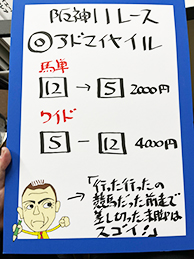 阪神11レース
◎アドマイヤイル
馬単
12 → 5 2000円
ワイド
5 - 12 4000円
→ 「行った行ったの
競馬だった前走で
差し切った末脚は
スゴイ!」